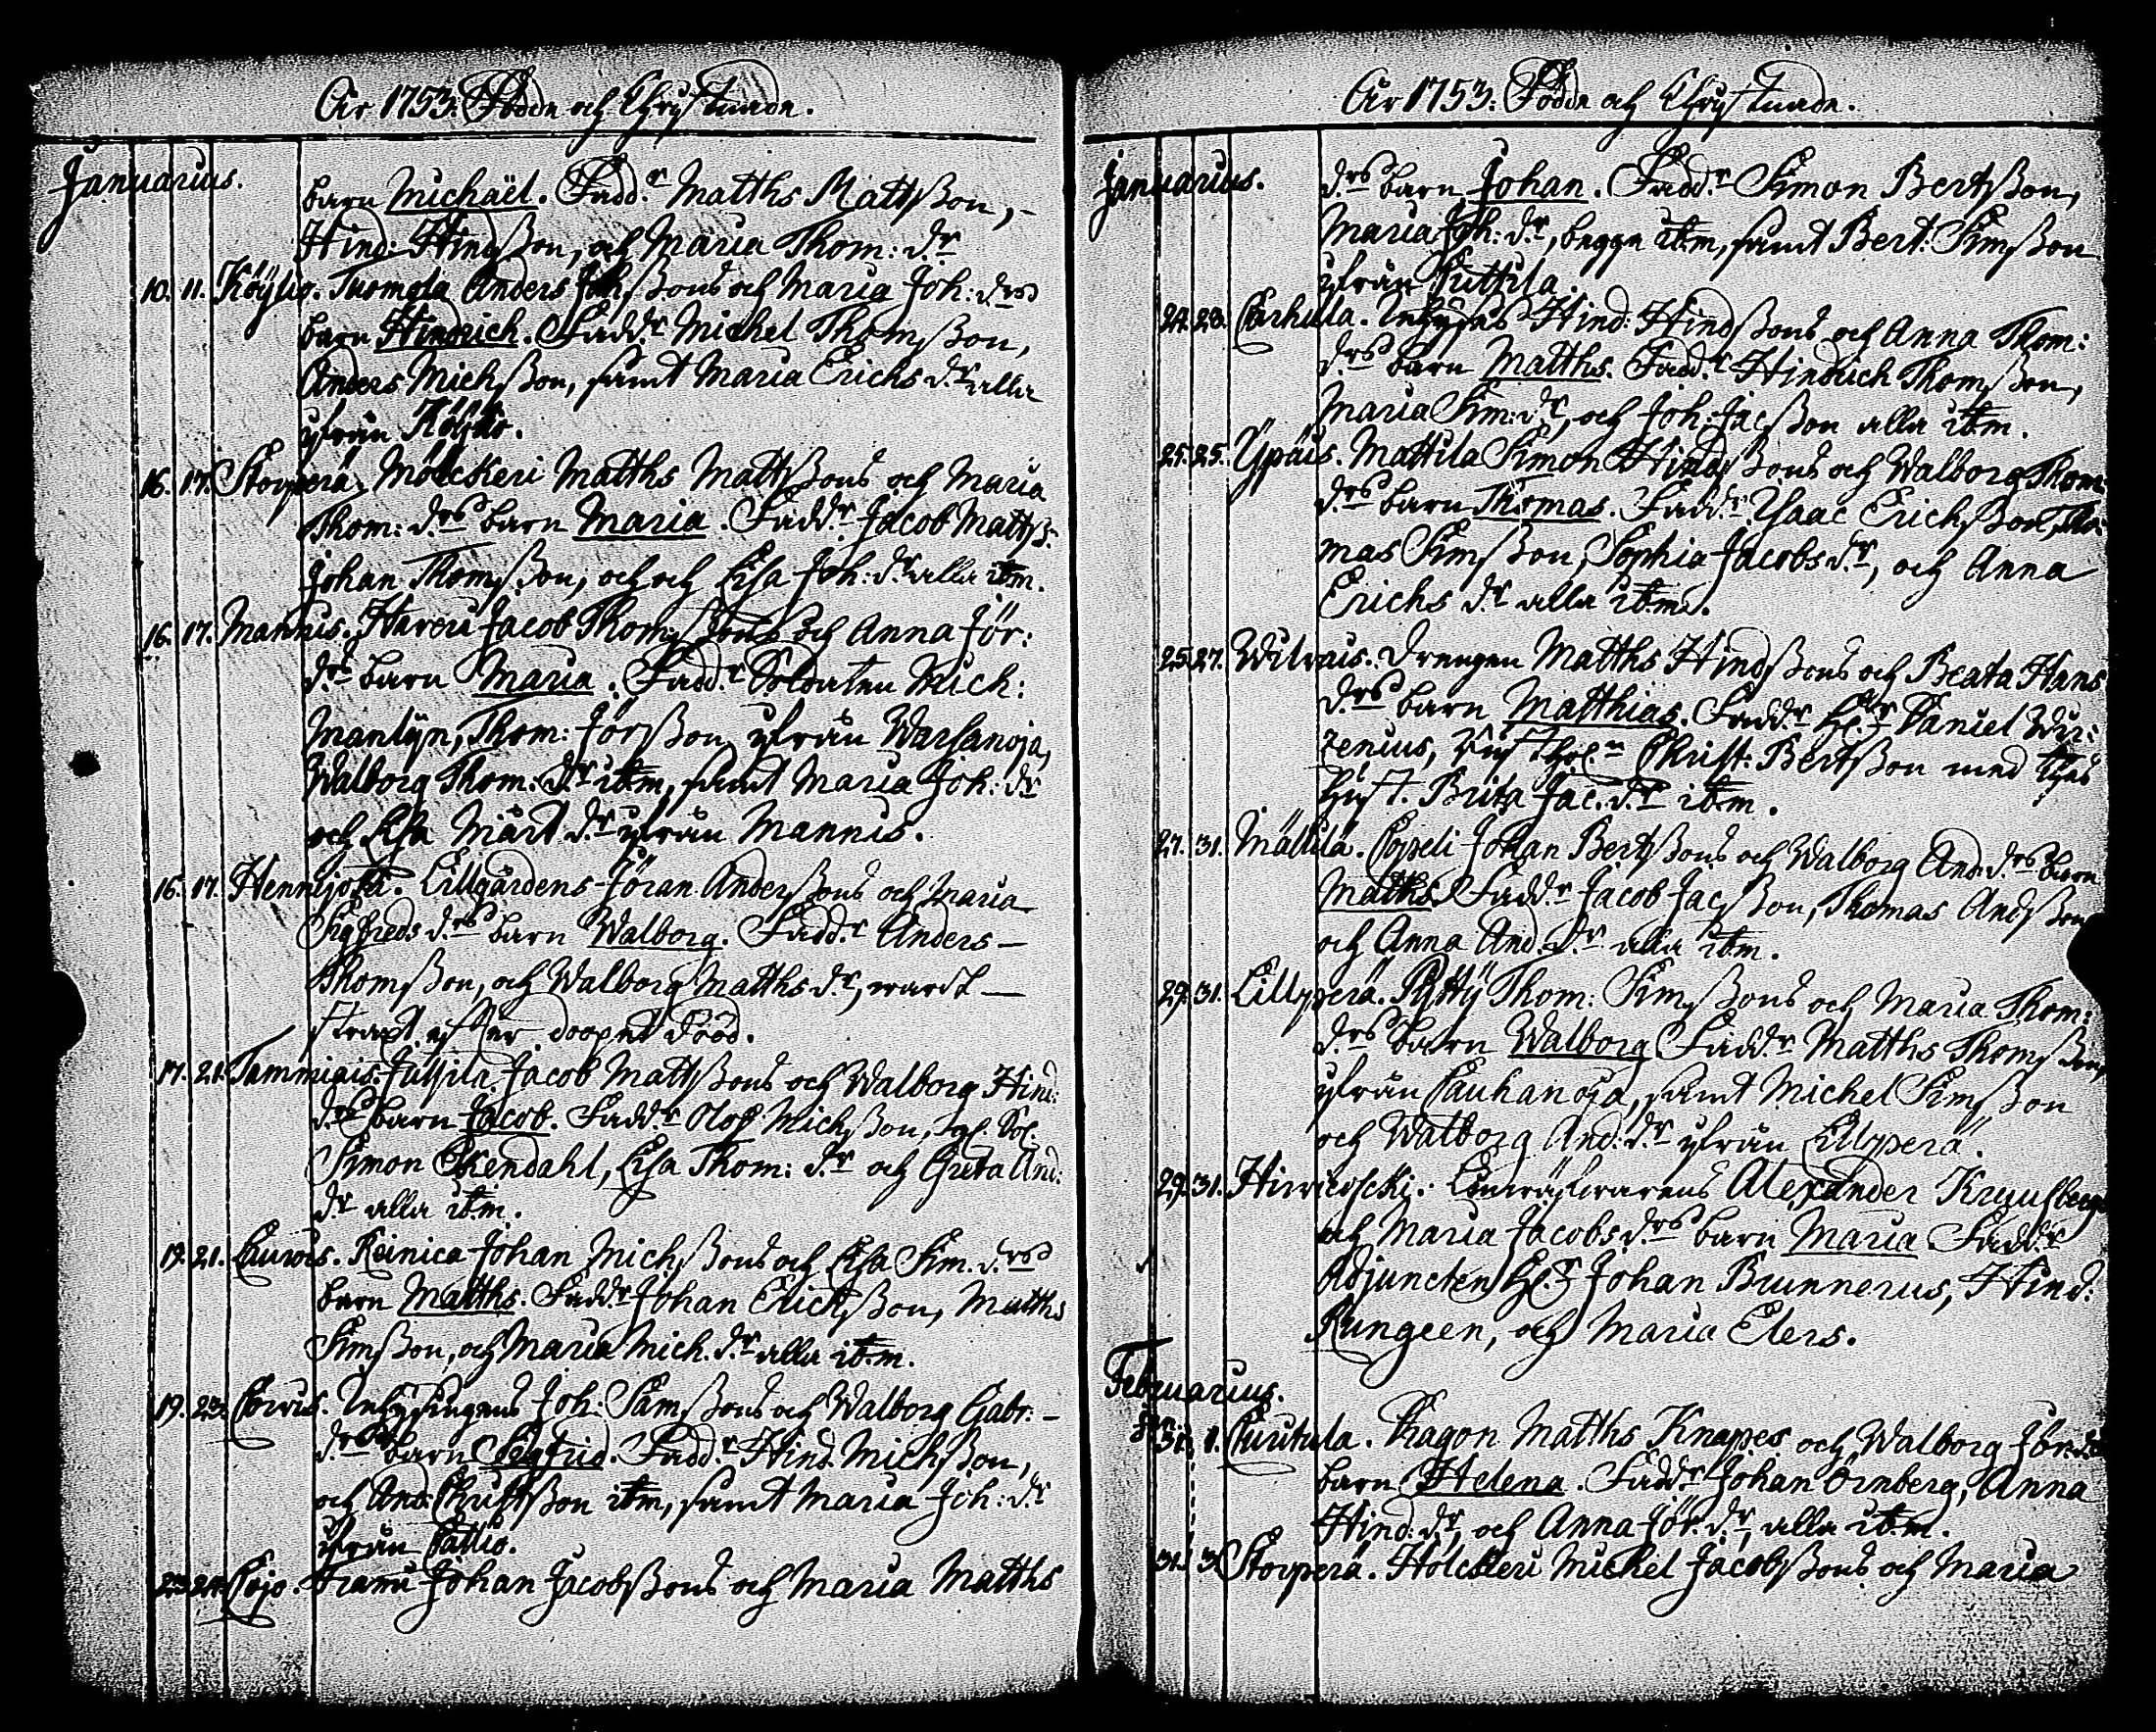 År 1753. Födde och Christnade.
Januarius.
barn Michaël. Fadd.r Matths Mattsson,
Hind: Hindsson, och Maria Thom: d.r
10. 11. Köylio. Tuomola Anders Johssons och Maria Joh: d.rs
barn Hindrich. Fadd.r Michel Thomsson,
Anders Michsson, samt Maria Erichs d.r alla
ifrån
16. 17. Storperä. Mölckeri Matths Mattssons och Maria
Thom: d.rs barn Maria. Fadd.r Jacob Mattss:
Johan Thomsson, och och Lisa Joh: d.r alla itm.
16. 17. Mannis. Haveri Jacob Thomssons och Anna Jör:
d.rs barn Maria. Fadd.r Soldaten Mich:
Manlyn, Thom: Jörsson ifrån Warsanoja,
Walborg Thom: d.r itm, samt Maria Joh: d.r
och Lisa Märt d.r ifrån Mannis.
16. 17. Hennijoki. Lillgårdens Jöran Anderssons och Maria
Sigfreds d.rs barn Walborg. Fadd.r Anders
Thomsson, och Walborg Matths d.r, wardt
straxt efter doopet död.
17. 21. Tammiais. Jussila Jacob Mattssons och Walborg Hind:
d.rs barn Jacob. Fadd.r Olof Michsson, Sol.
Simon Ekendahl, Lisa Thom: d.r och Greta And:
d.r alla itm.
19. 21. Laurois. Reinica Johan Michssons och Lisa Sim. d.rs
barn Matths. Fadd.r Johan Erichsson, Matths
Simsson, och Maria Mich. d.r alla itm.
19. 23. Corvis. Inhysingens Joh: Samssons och Walborg Gabr:
d.rs barn Segfrid. Fadd.r Hind. Michsson,
och And. Christsson itm, samt Maria Joh: d.r
ifrån Cattio.
23. 24. Cojo. Frami Johan Jacobssons och Maria Matths
År 1753. Födde och Christnade.
Januarius.
d.rs barn Johan. Fadd.r Simon Bertsson,
Maria Joh: d.r, begge itm, samt Bert: Simsson
ifrån Puttila.
22. 23. Carhula. Inhyses Hind: Hindssons och Anna Thom:
d.rs barn Matths. Fadd.r Hindrich Thomsson,
Maria Sim: d.r, och Joh: Jacsson alla itm.
25. 25. Ypäis. Mattila Simon Hindssons och Walborg Thom:
d.rs barn Thomas. Fadd.r Isaac Erichsson, Tho:
mas Simsson, Sophia Jacobs d.r, och Anna
Erichs d.r alla itm.
25. 27. Wilvais. Drengen Matths Hindssons och Beata Hans
d.rs barn Matthias. Fadd.r Daniel Wi:
zenius, Christ: Bertsson med thes
hust. Brita Jac. d.r itm.
27. 31. Mällilä. Coppeli Johan Bertssons och Walborg And. d.rs barn
Matths. Fadd.r Jacob Jacsson, Thomas Andsson
och Anna And. d.r alla itm.
29. 31. Lillperä. Pytty Thom: Simssons och Maria Thom:
d.rs barn Walborg. Fadd.r Matths Thomsson,
ifrån Cauhanoja, samt Michel Simsson
och Walborg And: d.r ifrån Lillperä.
29. 31. Alexander
och Maria Jacobs d.rs barn Maria. Fadd.r
Adjuncten H.r Johan Brunnerus, Hind:
Rungeen, och Maria Elers.
Februarius.
Jan. 31. 1. Curitula. Ragon Matths Knapes och Walborg Jör. d.rs
barn Helena. Fadd.r Johan Örnberg, Anna
Hind: d.r, och Anna Jör. d.r, alla itm.
31. 3. Storperä. Holckeri Michel Jacobssons och Maria